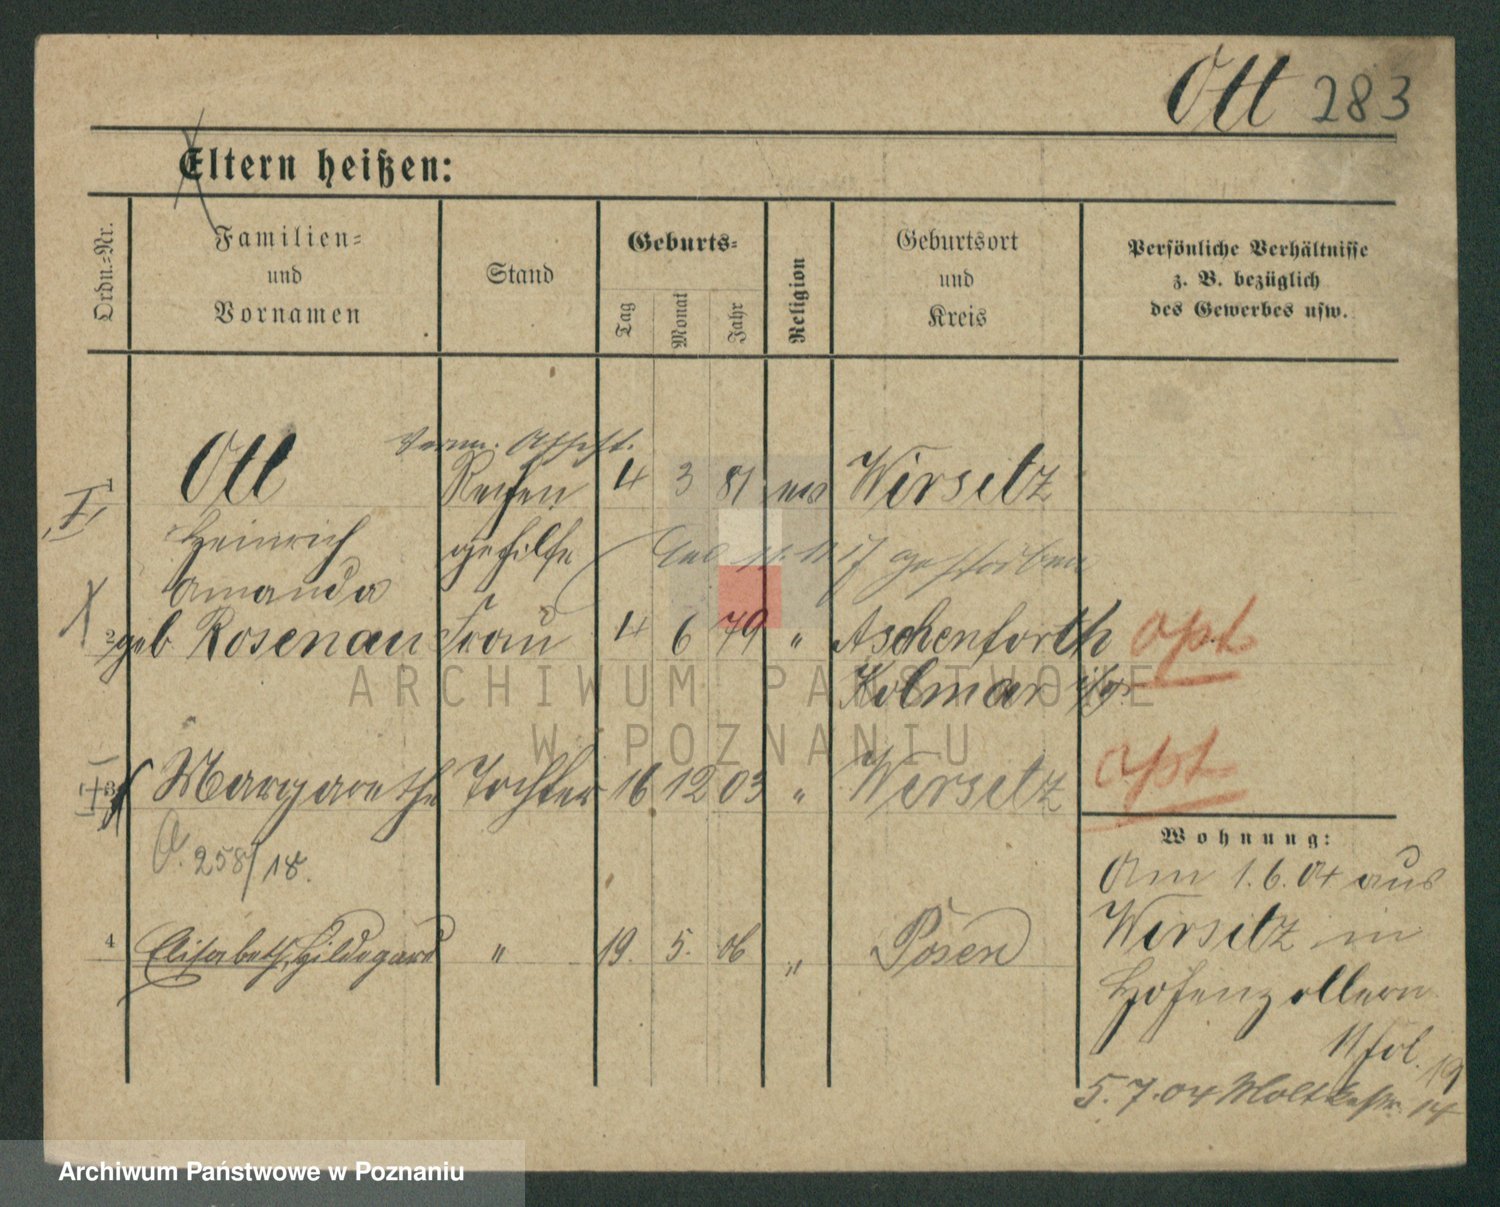 Ott 283
Eltern heißen:
Ordn.=Nr.
Familien=
und
Vornamen
Stand
Geburts=
Tag
Monat
Jahr
Religion
Geburtsort
und
Kreis
Persönliche Verhältnisse
z. B. bezüglich
des Gewerbes usw.
Verm.
Ott 4 3 81 Wirsitz
Heinrich gehilfe
gestorben
Amanda
2 geb Rosenau Frau 4 6 79 " Aschenforth opt
Kolmar i/p.
3 Margarethe Tochter 16 12 03 " Wirsitz opt
O. 258/18.
4 Elisabeth, Hildegard " 19. 5. 06 " Posen
Wohnung:
Am 1.6.04 aus
Wirsitz in
Hohenzollern
19
5.7.04 Moltkestr. 14
ARCHIWUM PAŃSTWOWE
W POZNANIU
Archiwum Państwowe w Poznaniu